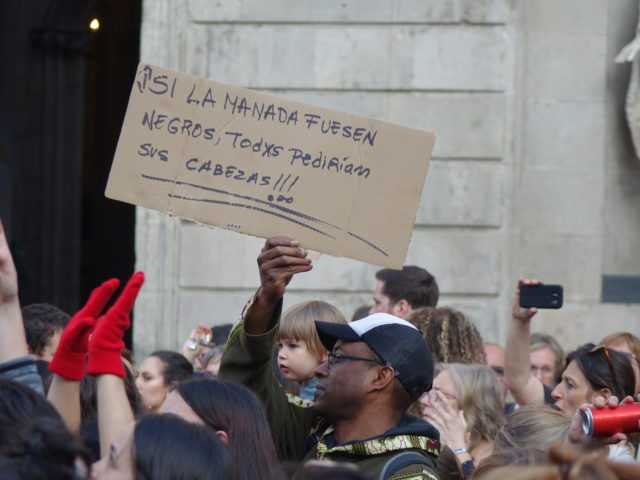 ¡¡SI LA MANADA FUESEN
NEGROS, TodXs PEdIRIAN
SUS CABEZAS!!!